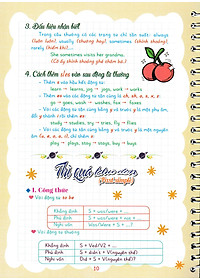 3. Dấu hiệu nhận biết
Trong câu thường có các trạng từ chỉ tần suất: always
(luôn luôn), usually, (thường hay), sometimes (thỉnh thoảng),
rarely (hiếm khi)...
She sometimes visits her grandma.
(Cô ấy thỉnh thoảng ghé thăm bà.)
4. Cách thêm s/es vào sau động từ thường
- Thêm s vào hầu hết động từ.
learn → learns, jog → jogs, work → works
- Thêm es vào các động từ tận cùng là ch, sh, s, x, z, o
go → goes, wash → washes, fix → fixes
- Với các động từ tận cùng bằng y và trước y là một phụ âm
study → studies, try → tries, fly → flies
- Với các động từ tận cùng bằng y và trước y là một nguyên
play → plays, stay → stays, buy → buys
Thì quá khứ đơn
1. Công thức
Với động từ to be
Khẳng định S + was/were + ...
Phủ định S + was/were + not ...
Nghi vấn Was/Were + S + ...?
Với động từ thường
Khẳng định S + Ved/V2 + ...
Phủ định S + didn't + V(nguyên thể)
Nghi vấn Did + S + V(nguyên thể)...?
10